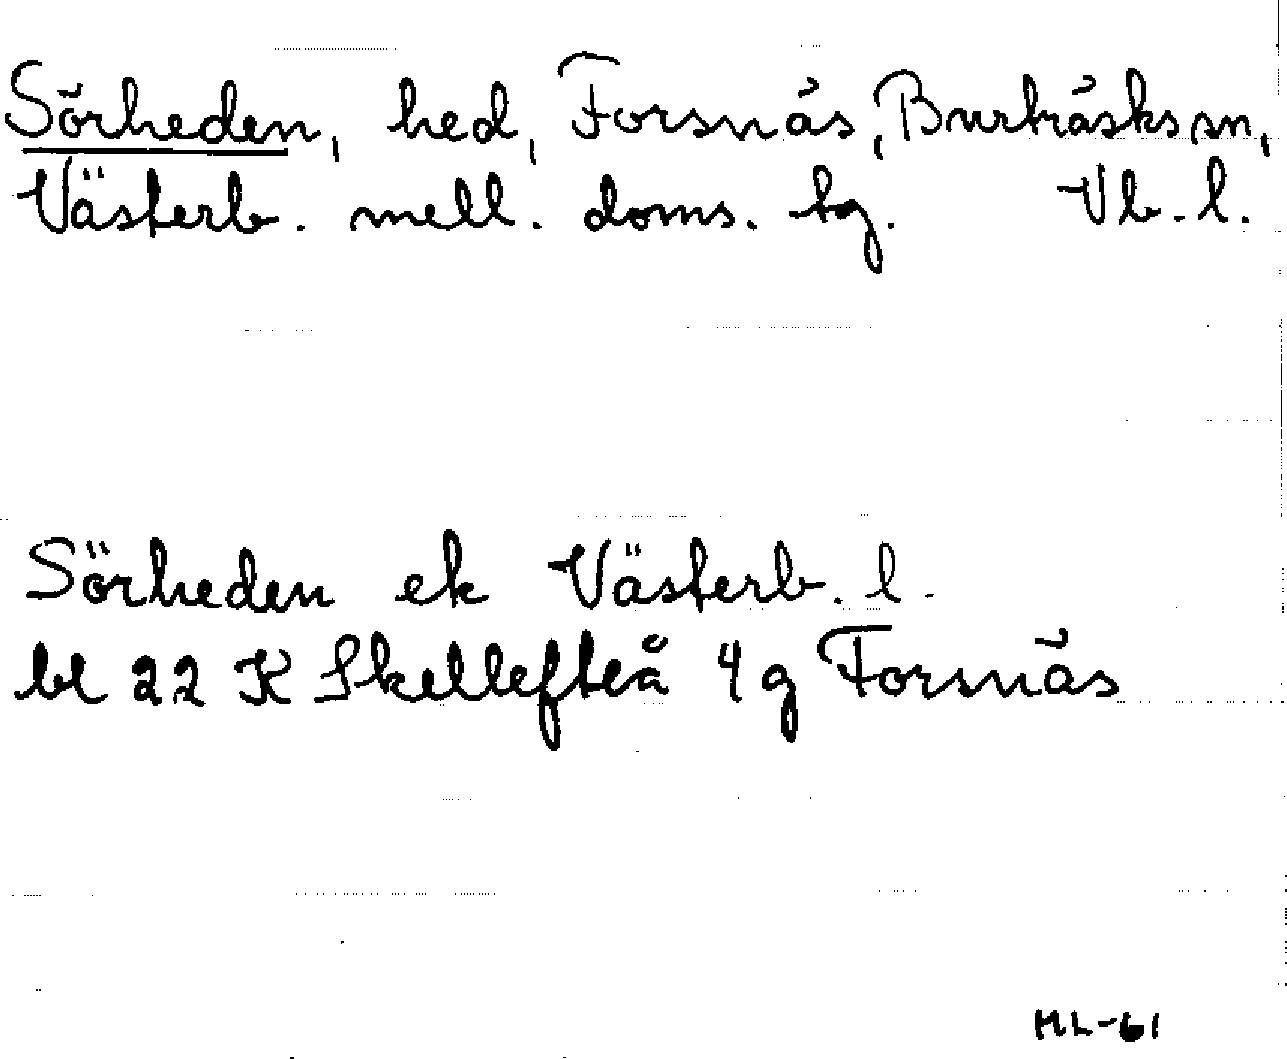 Sörheden, hed, Forsnäs, Burträsks sn,
Västerb. mell. doms. tg. Vb. l.
Sörheden ek Västerb. l.
bl 22 K Skellefteå 4 g Forsnäs
ML-61